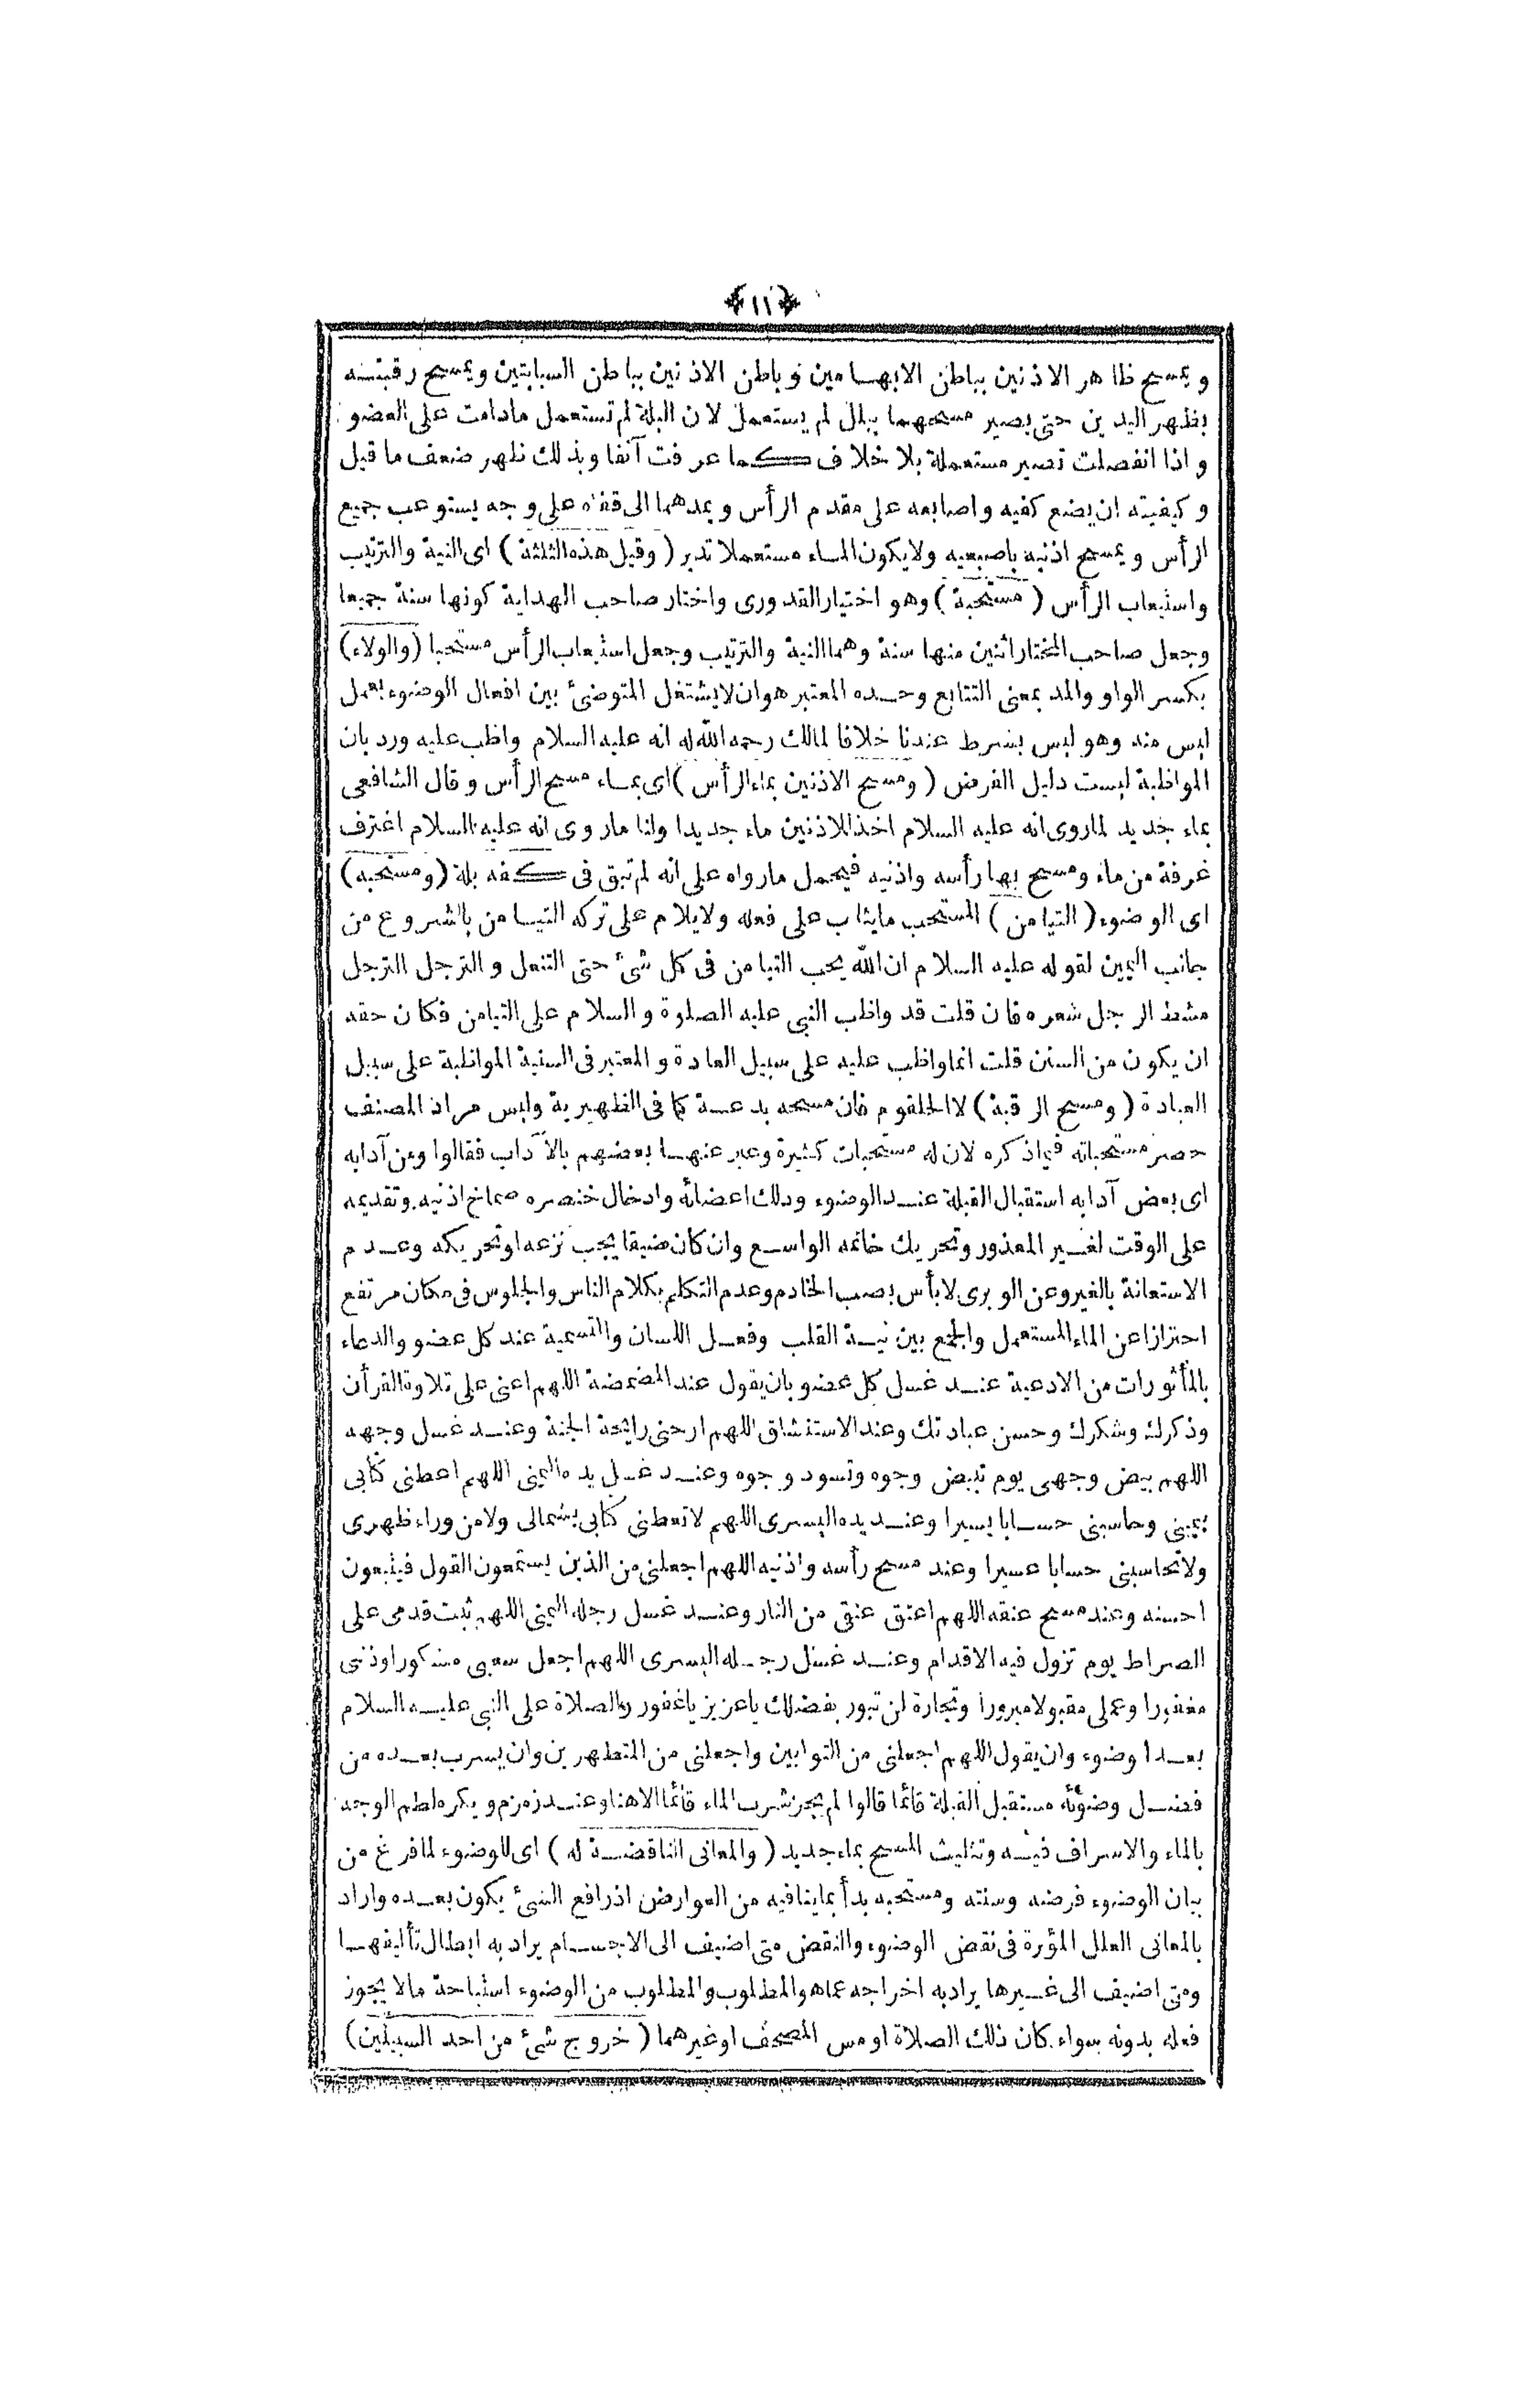 ﴿١١﴾
ويمسح ظاهر الاذنين بباطن الابهامين وباطن الاذنين بباطن السبابتين ويمسح رقبته
بظهر اليدين حتى يصير مسحهما ببلل لم يستعمل لان البلة لم تستعمل مادامت على العضو
واذا انفصلت تصير مستعملة بلا خلاف كما عرفت آنفا وبذلك ظهر ضعف ما قيل
وكيفيته ان يضع كفيه واصابعه على مقدم الرأس ويمدهما الى قفاه على وجه يستوعب جميع
الرأس ويمسح اذنيه باصبعيه ولايكون الماء مستعملا تدبر (وقيل هذه الثلثة) اى النية والترتيب
واستيعاب الرأس (مستحبة) وهو اختيار القدورى واختار صاحب الهداية كونها سنة جميعا
وجعل صاحب المختار اثنين منها سنة وهما النية والترتيب وجعل استيعاب الرأس مستحبا (والولاء)
بكسر الواو والمد بمعنى التتابع وحده المعتبر هو ان لايشتغل المتوضئ بين افعال الوضوء بعمل
ليس منه وهو ليس بشرط عندنا خلافا لمالك رحمه الله له انه عليه السلام واظب عليه ورد بان
المواظبة ليست دليل الفرض (ومسح الاذنين بماء الرأس) اى بماء مسح الرأس وقال الشافعى
بماء جديد لماروى انه عليه السلام اخذ للاذنين ماء جديدا ولنا ماروى انه عليه السلام اغترف
غرفة من ماء ومسح بها رأسه واذنيه فيحمل مارواه على انه لم تبق فى كفه بلة (ومستحبه)
اى الوضوء (التيامن) المستحب مايثاب على فعله ولايلام على تركه التيامن بالشروع من
جانب اليمين لقوله عليه السلام ان الله يحب التيامن فى كل شئ حتى التنعل والترجل الترجل
مشط الرجل شعره فان قلت قد واظب النبى عليه الصلوة والسلام على التيامن فكان حقه
ان يكون من السنن قلت انما واظب عليه على سبيل العادة والمعتبر فى السنية المواظبة على سبيل
العبادة (ومسح الرقبة) لا الحلقوم فان مسحه بدعة كما فى الظهيرية وليس مراد المصنف
حصر مستحباته فيما ذكره لان له مستحبات كثيرة وعبر عنها بعضهم بالآداب فقالوا ومن آدابه
اى بعض آدابه استقبال القبلة عند الوضوء ودلك اعضائه وادخال خنصره صماخ اذنيه وتقديمه
على الوقت لغير المعذور وتحريك خاتمه الواسع وان كان ضيقا يجب نزعه او تحريكه وعدم
الاستعانة بالغير وعن الوبرى لابأس بصب الخادم وعدم التكلم بكلام الناس والجلوس فى مكان مرتفع
احترازا عن الماء المستعمل والجمع بين نية القلب وفعل اللسان والتسمية عند كل عضو والدعاء
بالمأثورات من الادعية عند غسل كل عضو بان يقول عند المضمضة اللهم اعنى على تلاوة القرأن
وذكرك وشكرك وحسن عبادتك وعند الاستنشاق اللهم ارحنى رائحة الجنة وعند غسل وجهه
اللهم بيض وجهى يوم تبيض وجوه وتسود وجوه وعند غسل يده اليمنى اللهم اعطنى كتابى
بيمينى وحاسبنى حسابا يسيرا وعند يده اليسرى اللهم لاتعطنى كتابى بشمالى ولا من وراء ظهرى
ولاتحاسبنى حسابا عسيرا وعند مسح رأسه واذنيه اللهم اجعلنى من الذين يستمعون القول فيتبعون
احسنه وعند مسح عنقه اللهم اعتق عنقى من النار وعند غسل رجله اليمنى اللهم ثبت قدمى على
الصراط يوم تزول فيه الاقدام وعند غسل رجله اليسرى اللهم اجعل سعيى مشكورا وذنبى
مغفورا وعملى مقبولا مبرورا وتجارة لن تبور بفضلك ياعزيز ياغفور والصلاة على النبى عليه السلام
بعد الوضوء وان يقول اللهم اجعلنى من التوابين واجعلنى من المتطهرين وان يشرب بعده من
فضل وضوئه مستقبل القبلة قائما قالوا لم يجز شرب الماء قائما الا هنا وعند زمزم ويكره لطم الوجه
بالماء والاسراف فيه وتثليث المسح بماء جديد (والمعانى الناقضة له) اى للوضوء لما فرغ من
بيان الوضوء فرضه وسنته ومستحبه بدأ بما ينافيه من العوارض اذ رافع الشئ يكون بعده واراد
بالمعانى العلل المؤثرة فى نقض الوضوء والنقض متى اضيف الى الاجسام يراد به ابطال تأليفها
ومتى اضيف الى غيرها يراد به اخراجه عما هو المطلوب والمطلوب من الوضوء استباحة مالا يجوز
فعله بدونه سواء كان ذلك الصلاة او مس المصحف او غيرهما (خروج شئ من احد السبيلين)